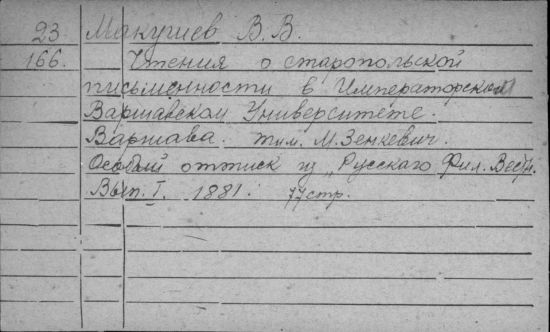 23. Макушев В. В.
166. Чтения о старопольской
письменности в Императорском
Варшавском Университете.
Варшава. тип. М. Зенкевич.
Особый оттиск из „Русскаго Фил. Вестн.
Вып. I. 1881. 77 стр.